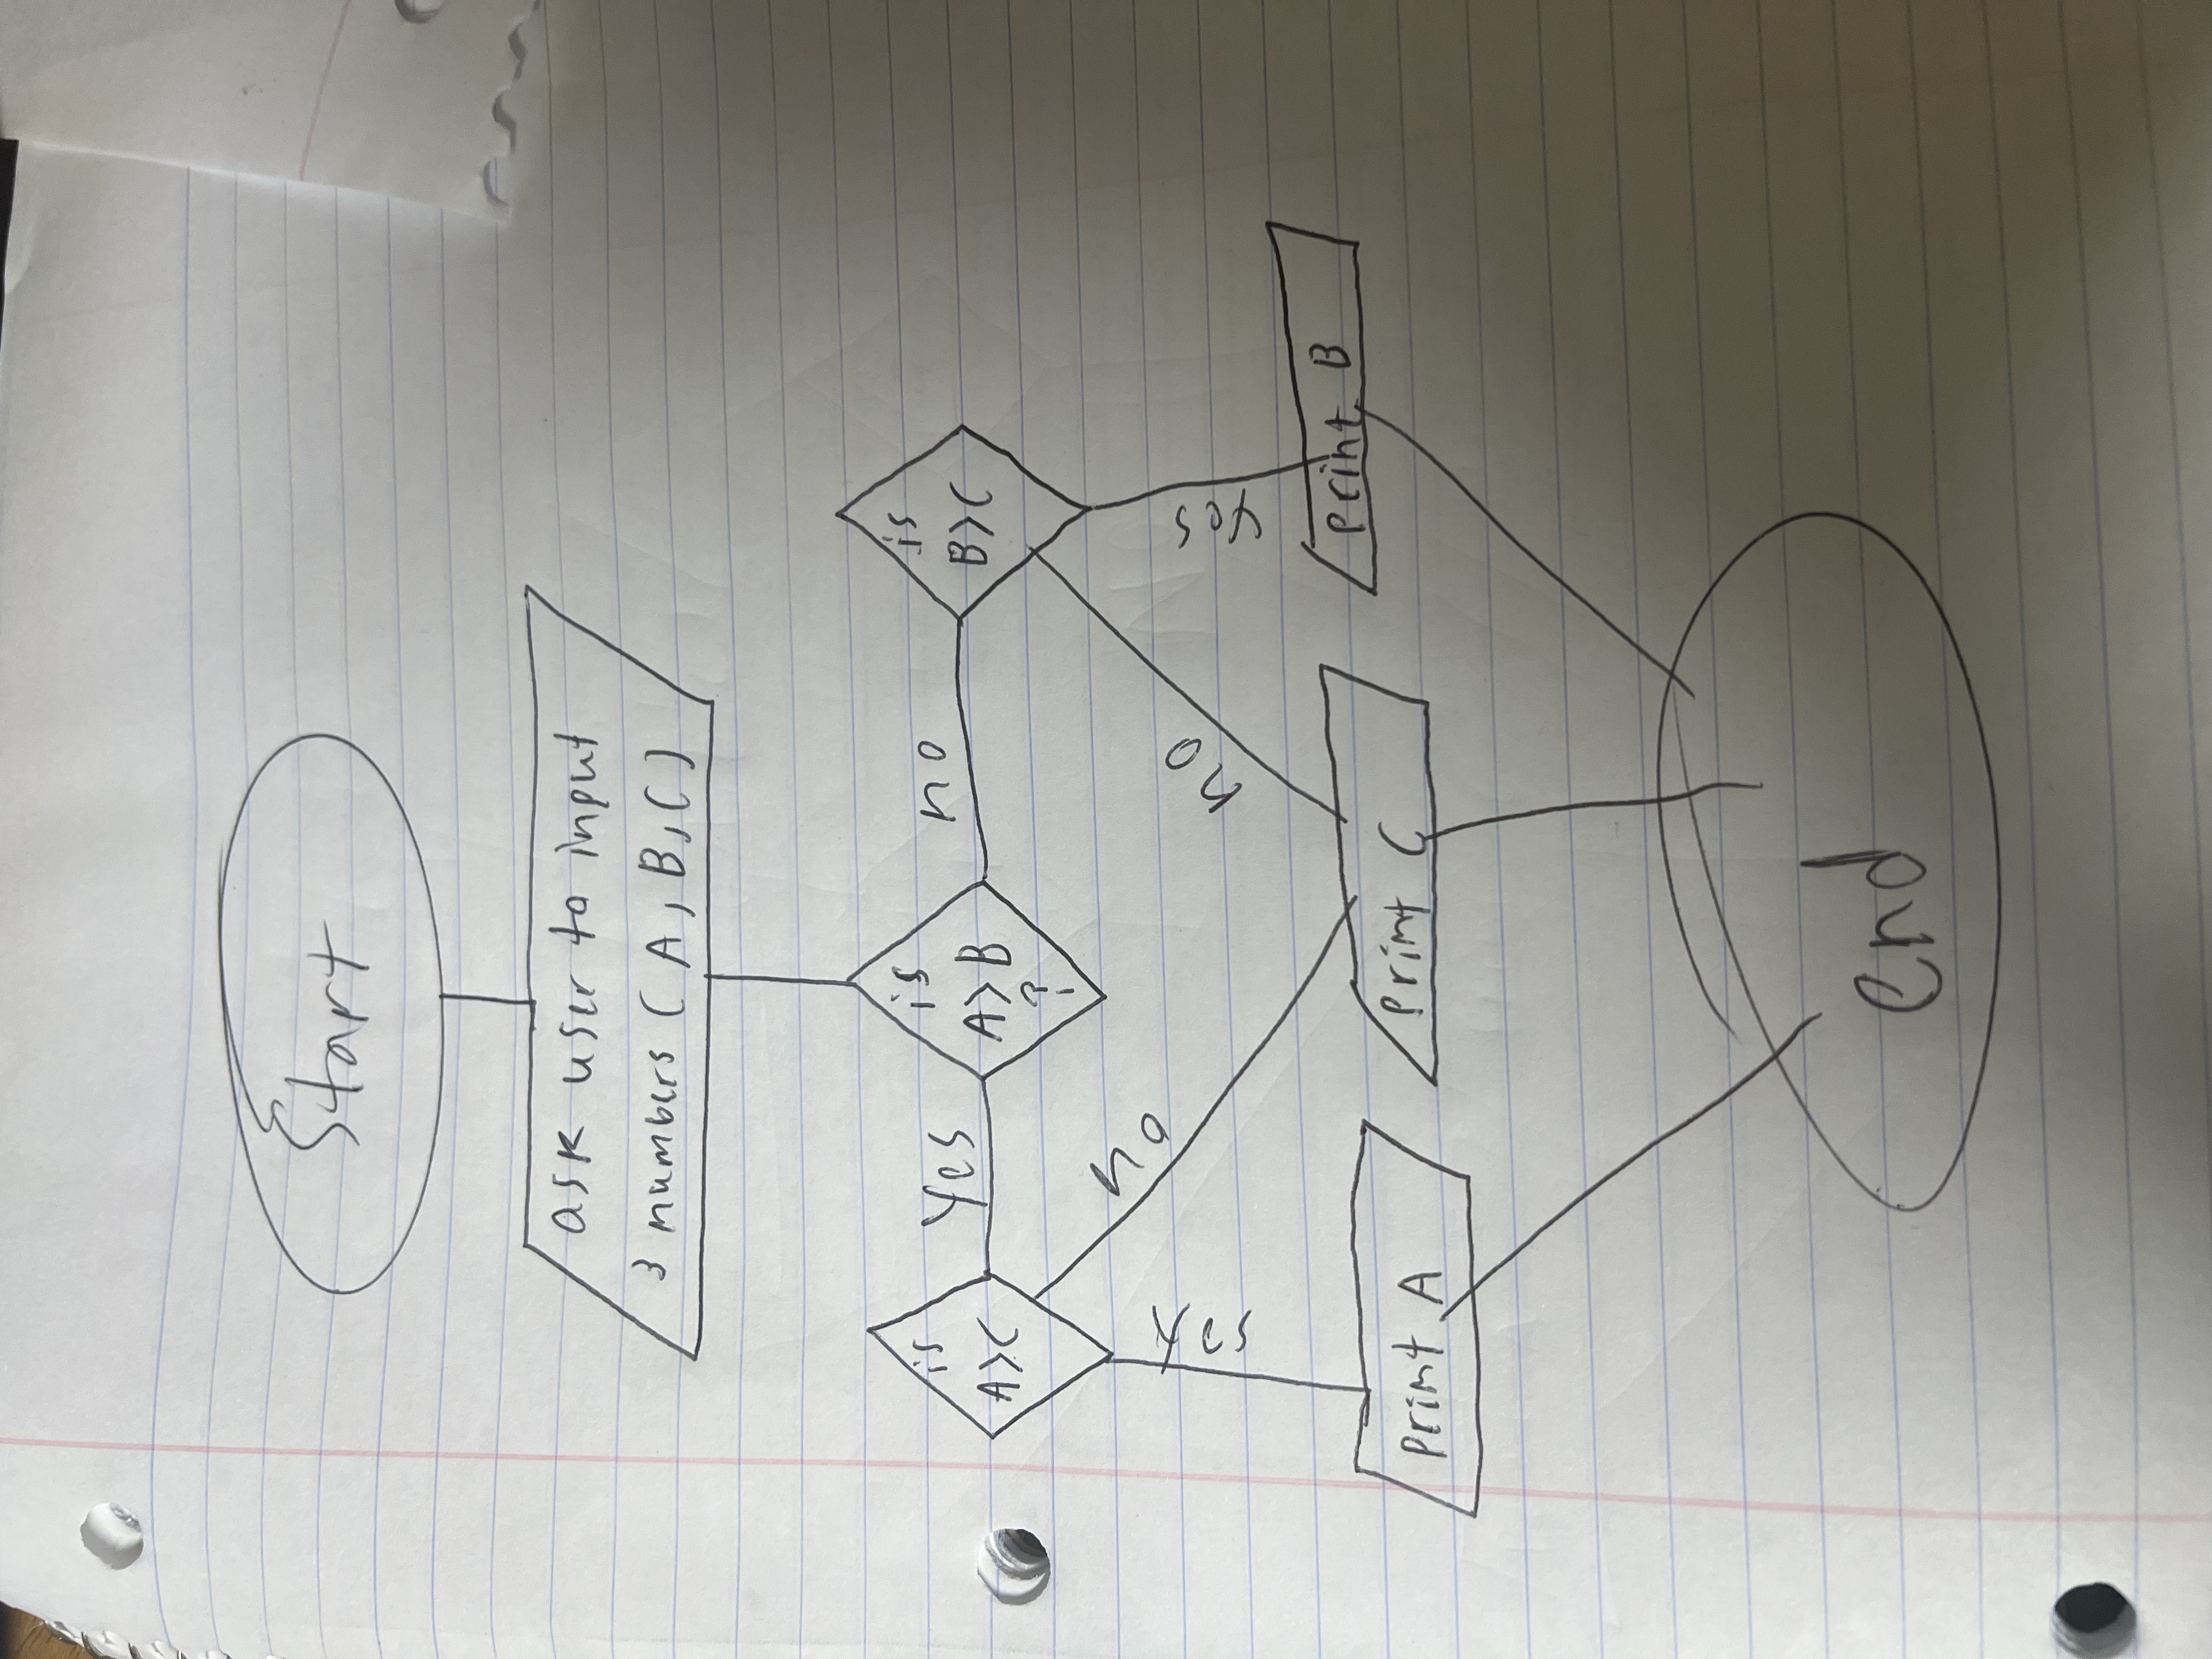 Start
ask user to input
3 numbers ( A, B, C)
is
A>C
Yes
is
A>B
?
no
is
B>C
Yes
no
no
Yes
print A
print C
print B
end